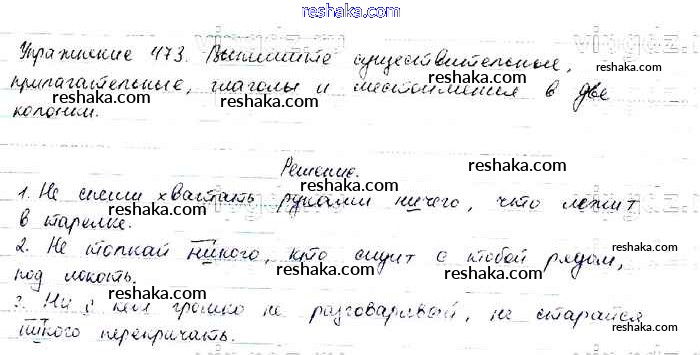 reshaka.com
Упражнение 473. Выпишите существительные,
reshaka.com
прилагательные, глаголы и местоимения в две
reshaka.com reshaka.com reshaka.com
колонки.
Решение. reshaka.com
1. Не спеши хватать руками ничего, что лежит
reshaka.com reshaka.com
в тарелке.
2. Не толкай никого, кто сидит с тобой рядом,
reshaka.com
под локоть.
reshaka.com reshaka.com
3. Ни с кем громко не разговаривай, не старайся
reshaka.com
никого перекричать.
reshaka.com reshaka.com